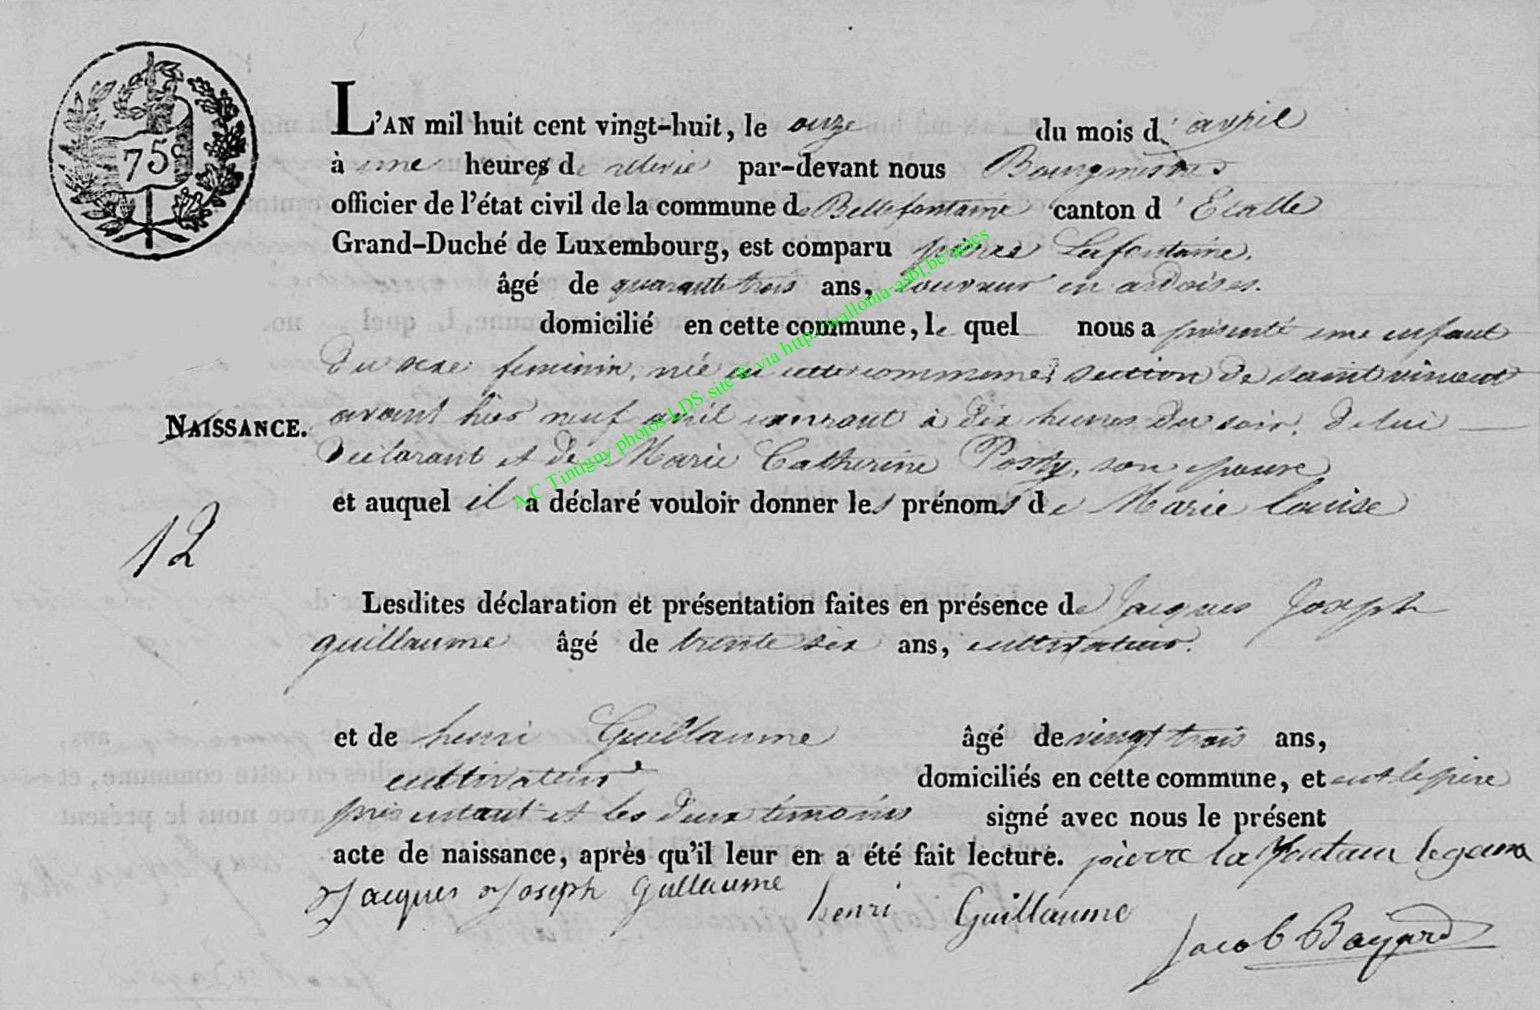 75c
L'AN mil huit cent vingt-huit, le onze du mois d'avril
à une heures de relevée par-devant nous Bourgmestre
officier de l'état civil de la commune de Bellefontaine canton d'Etalle
Grand-Duché de Luxembourg, est comparu pierre Lafontaine.
âgé de quarante trois ans, Couvreur en ardoises.
domicilié en cette commune, le quel nous a présenté une enfant
du sexe feminin, née en cette commune, section de saint vincent
NAISSANCE.
avant hier neuf avril courant à dix heures du soir. de lui
declarant et de Marie Catherine Posty, son epouse
et auquel il a déclaré vouloir donner les prénoms de Marie Louise
12
Lesdites déclaration et présentation faites en présence de Jacques Joseph
guillaume âgé de trente six ans, cultivateur.
et de henri Guillaume âgé de vingt trois ans,
cultivateur domiciliés en cette commune, et ont le père
présentant et les deux témoins signé avec nous le présent
acte de naissance, après qu'il leur en a été fait lecture. pierre lafontain
Jacques Joseph Guillaume henri Guillaume
Jacob Bayard
A.C Tintigny photos LDS site & via http://wallonia-asbl.be/actes